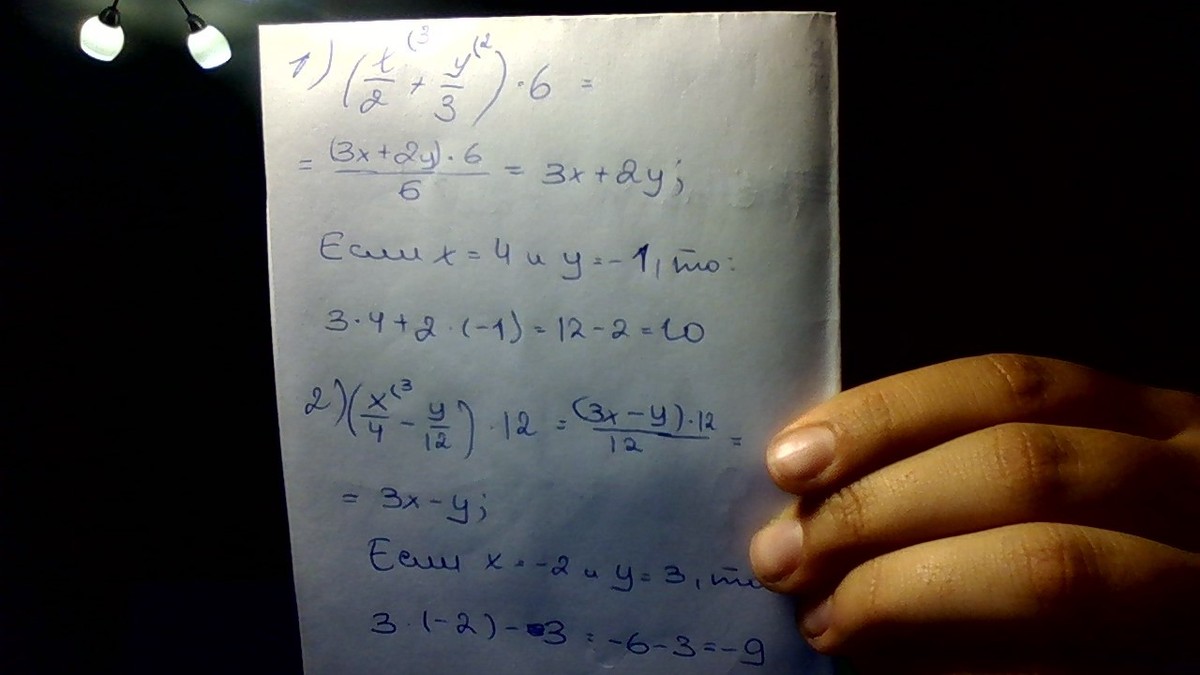 1) (x/2 (3 + y/3 (2) · 6 =
= (3x+2y) · 6 / 6 = 3x+2y;
Если x = 4 и y = -1, то:
3 · 4 + 2 · (-1) = 12 - 2 = 10
2) (x/4 (3 - y/12) · 12 = (3x - y) · 12 / 12 =
= 3x - y;
Если x = -2 и y = 3, то
3 · (-2) - 3 = -6 - 3 = -9